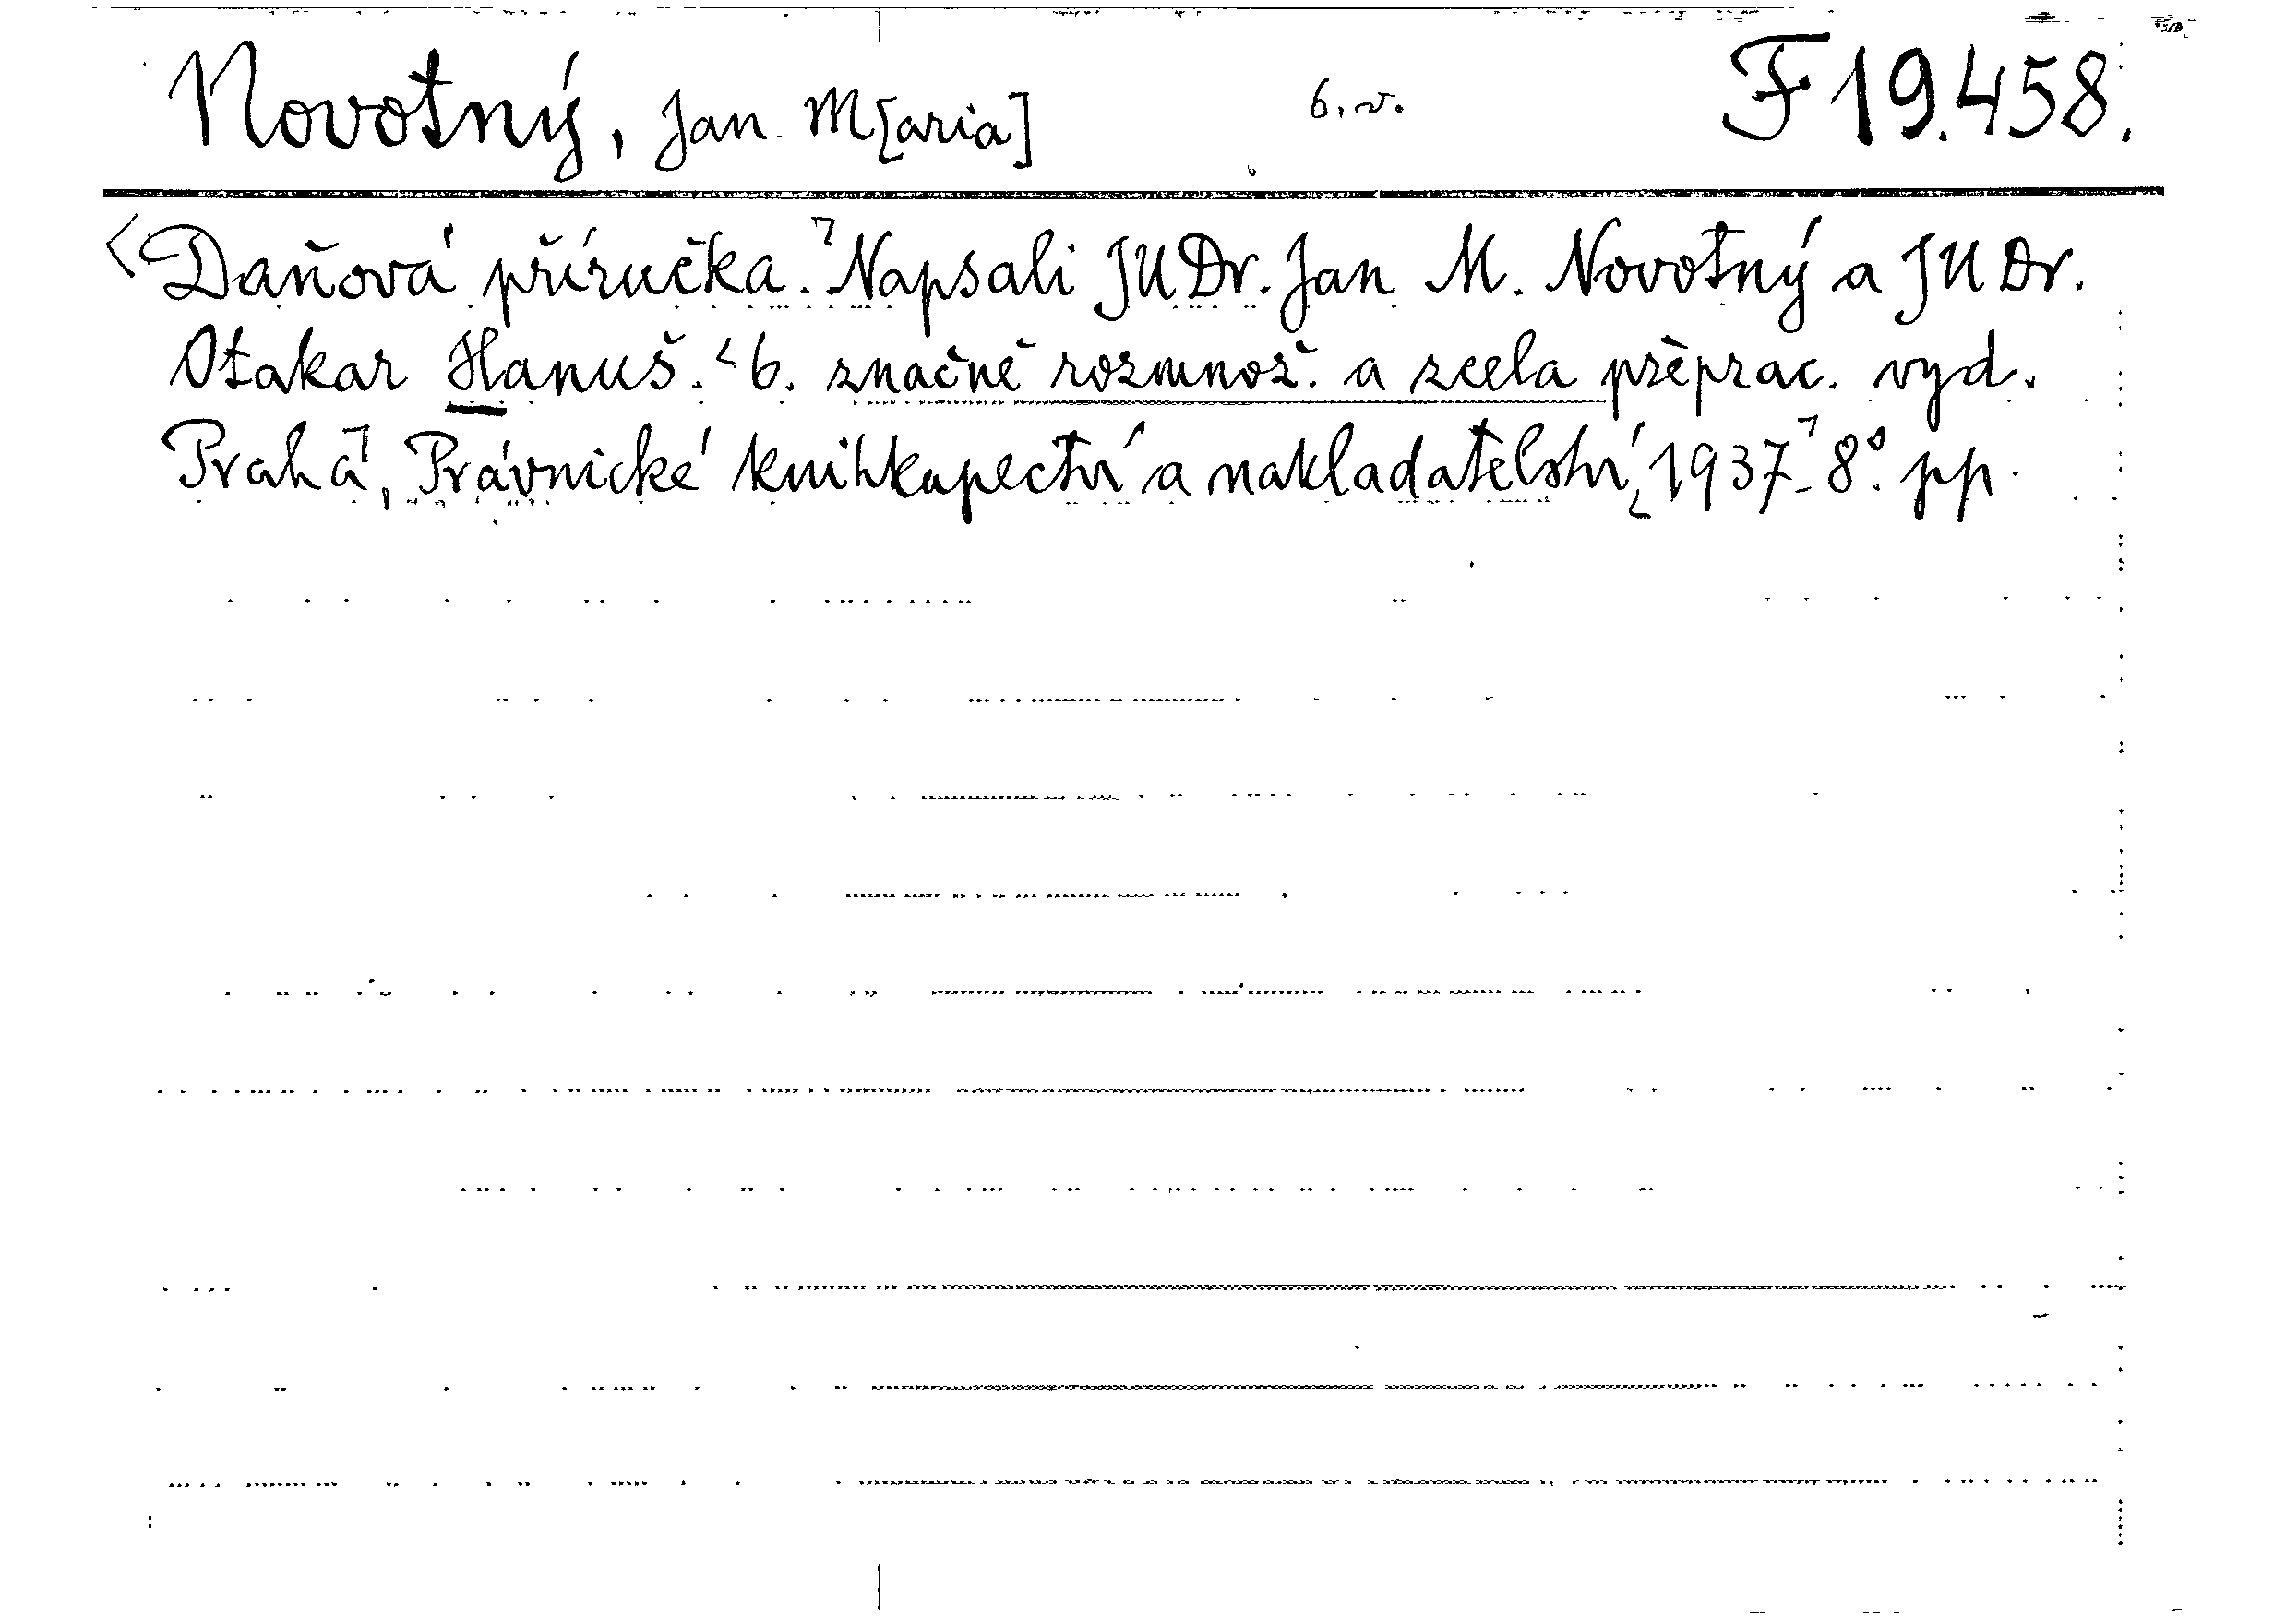 Novotný, Jan M[aria] 6. v. F 19.458.
Daňová příručka. Napsali JUDr. Jan M. Novotný a JUDr.
Otakar Hanuš. 6. značně rozmnož. a zcela přeprac. vyd.
Praha, Právnické knihkupectví a nakladatelství, 1937. 8°. pp.